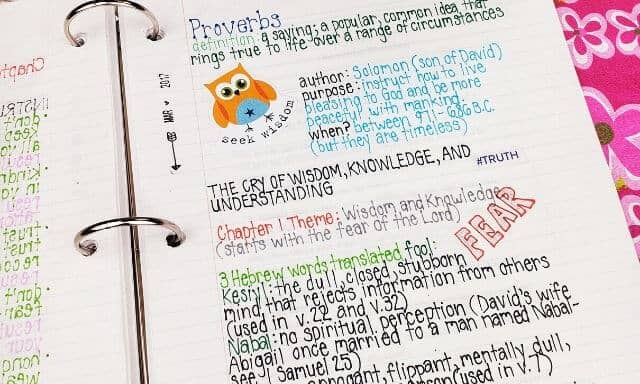 Proverbs
definition: a saying; a popular, common idea that
rings true to life over a range of circumstances
MAR 2017
seek wisdom
author: Solomon (son of David)
purpose: instruct how to live
pleasing to God and be more
peaceful with mankind.
when? between 971-686 B.C.
(but they are timeless)
THE CRY OF WISDOM, KNOWLEDGE, AND
UNDERSTANDING
#TRUTH
Chapter 1 Theme: Wisdom and Knowledge
(starts with the fear of the Lord)
FEAR
3 Hebrew words translated fool:
Kesiyl: the dull, closed, stubborn
mind that rejects information from others
(used in v.22 and v.32)
Nabal: no spiritual perception (David's wife
Abigail once married to a man named Nabal-
see 1 Samuel 25)
arrogant, flippant, mentally dull,
(used in v.7)